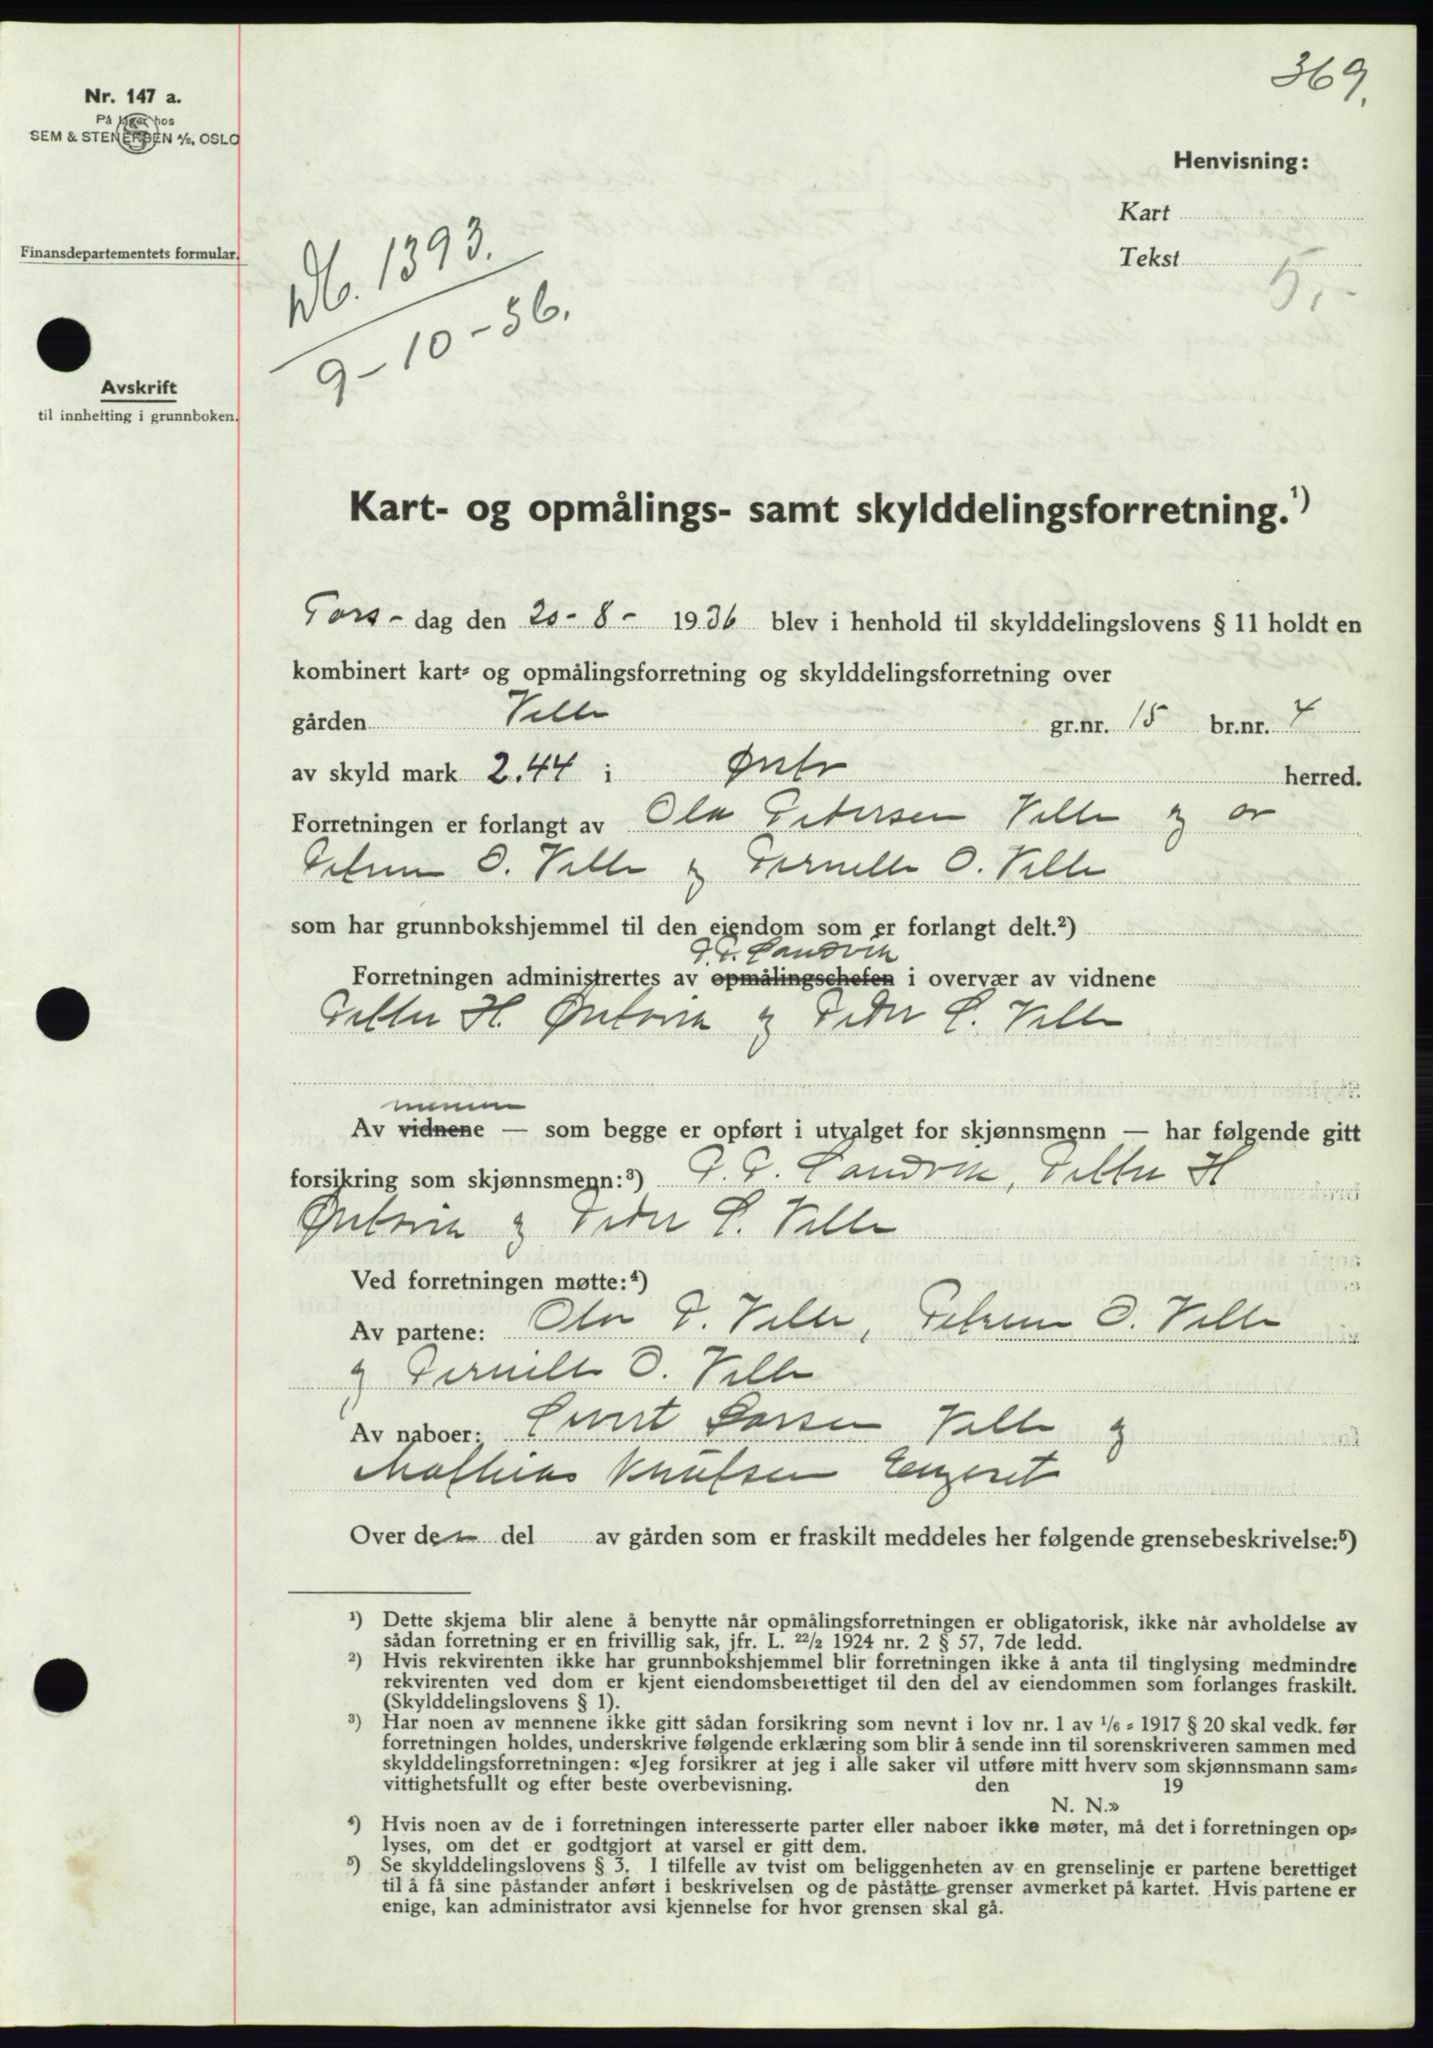 369.
Nr. 147 a.
På lager hos
SEM & STENERSEN A/S, OSLO
Henvisning:
Kart
Finansdepartementets formular.
Tekst
5,-
Db. 1393.
9-10-36.
Avskrift
til innhefting i grunnboken.
Kart- og opmålings- samt skylddelingsforretning.¹)
Tors- dag den 20-8- 1936 blev i henhold til skylddelingslovens § 11 holdt en
kombinert kart- og opmålingsforretning og skylddelingsforretning over
gården Velle gr.nr. 15 br.nr. 4
av skyld mark 2.44 i Ørsta herred.
Forretningen er forlangt av Ola Petersen Velle og av
Petrine O. Velle og Pernille O. Velle
som har grunnbokshjemmel til den eiendom som er forlangt delt.²)
P. P. Sandvik
Forretningen administrertes av opmålingschefen i overvær av vidnene
Petter H. Ørstavik og Peder S. Velle
mennene
Av vidnene — som begge er opført i utvalget for skjønnsmenn — har følgende gitt
forsikring som skjønnsmenn:³) P. P. Sandvik, Petter H
Ørstavik og Peder S. Velle
Ved forretningen møtte:⁴)
Av partene: Ola P. Velle, Petrine O. Velle
og Pernille O. Velle
Av naboer: Sivert Larsen Velle og
Mathias Knutsen Engeset
Over den del av gården som er fraskilt meddeles her følgende grensebeskrivelse:⁵)
¹) Dette skjema blir alene å benytte når opmålingsforretningen er obligatorisk, ikke når avholdelse av
sådan forretning er en frivillig sak, jfr. L. 22/2 1924 nr. 2 § 57, 7de ledd.
²) Hvis rekvirenten ikke har grunnbokshjemmel blir forretningen ikke å anta til tinglysing medmindre
rekvirenten ved dom er kjent eiendomsberettiget til den del av eiendommen som forlanges fraskilt.
(Skylddelingslovens § 1).
³) Har noen av mennene ikke gitt sådan forsikring som nevnt i lov nr. 1 av 1/6 - 1917 § 20 skal vedk. før
forretningen holdes, underskrive følgende erklæring som blir å sende inn til sorenskriveren sammen med
skylddelingsforretningen: «Jeg forsikrer at jeg i alle saker vil utføre mitt hverv som skjønnsmann sam-
vittighetsfullt og efter beste overbevisning. den 19
N. N.»
⁴) Hvis noen av de i forretningen interesserte parter eller naboer ikke møter, må det i forretningen op-
lyses, om det er godtgjort at varsel er gitt dem.
⁵) Se skylddelingslovens § 3. I tilfelle av tvist om beliggenheten av en grenselinje er partene berettiget
til å få sine påstander anført i beskrivelsen og de påståtte grenser avmerket på kartet. Hvis partene er
enige, kan administrator avsi kjennelse for hvor grensen skal gå.